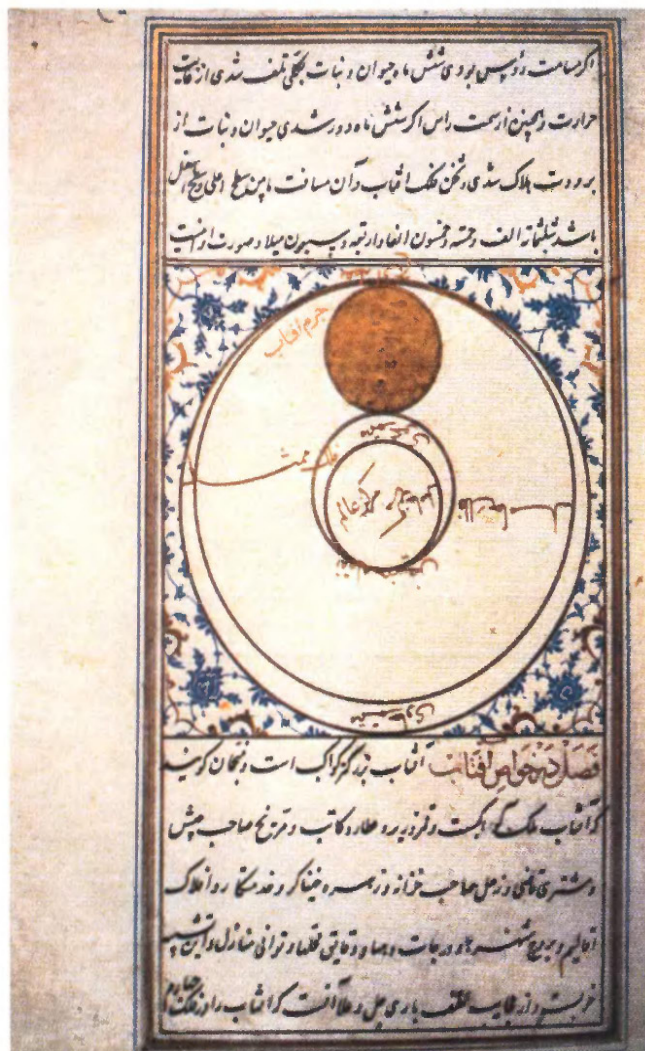 اگر مسامت رؤس بودی شش ماه حیوان و نبات بکلی تلف شدی از غایت
حرارت و همچنین از سمت راس اگر شش ماه دور شدی حیوان و نبات از
برودت هلاک شدی و ثخن فلک افتاب و آن مسافت مابین سطح اعلی و سطح اسفل
باشد ثلثمائه الف و خمسه و خمسون الفا و اربعه و سبعون میلا و صورت و
جرم آفتاب
فلک ممثل
متمم محوی
مرکز عالم
متمم حاوی
فصل در خواص آفتاب آفتاب بزرگتر کواکب است و منجمان گویند
که آفتاب ملک کواکبست و قمر وزیر و عطارد کاتب و مریخ صاحب جیش
و مشتری قاضی و زحل صاحب خزاین و زهره خنیاگر و خدمتکار و افلاک
اقالیم و بروج شهرها و درجات دیها و دقایق قلعها و ثوانی منازل و این تشبیه
خوبست و از عجایب لطف باری جل و علا آنست که افتاب را در فلک چهارم